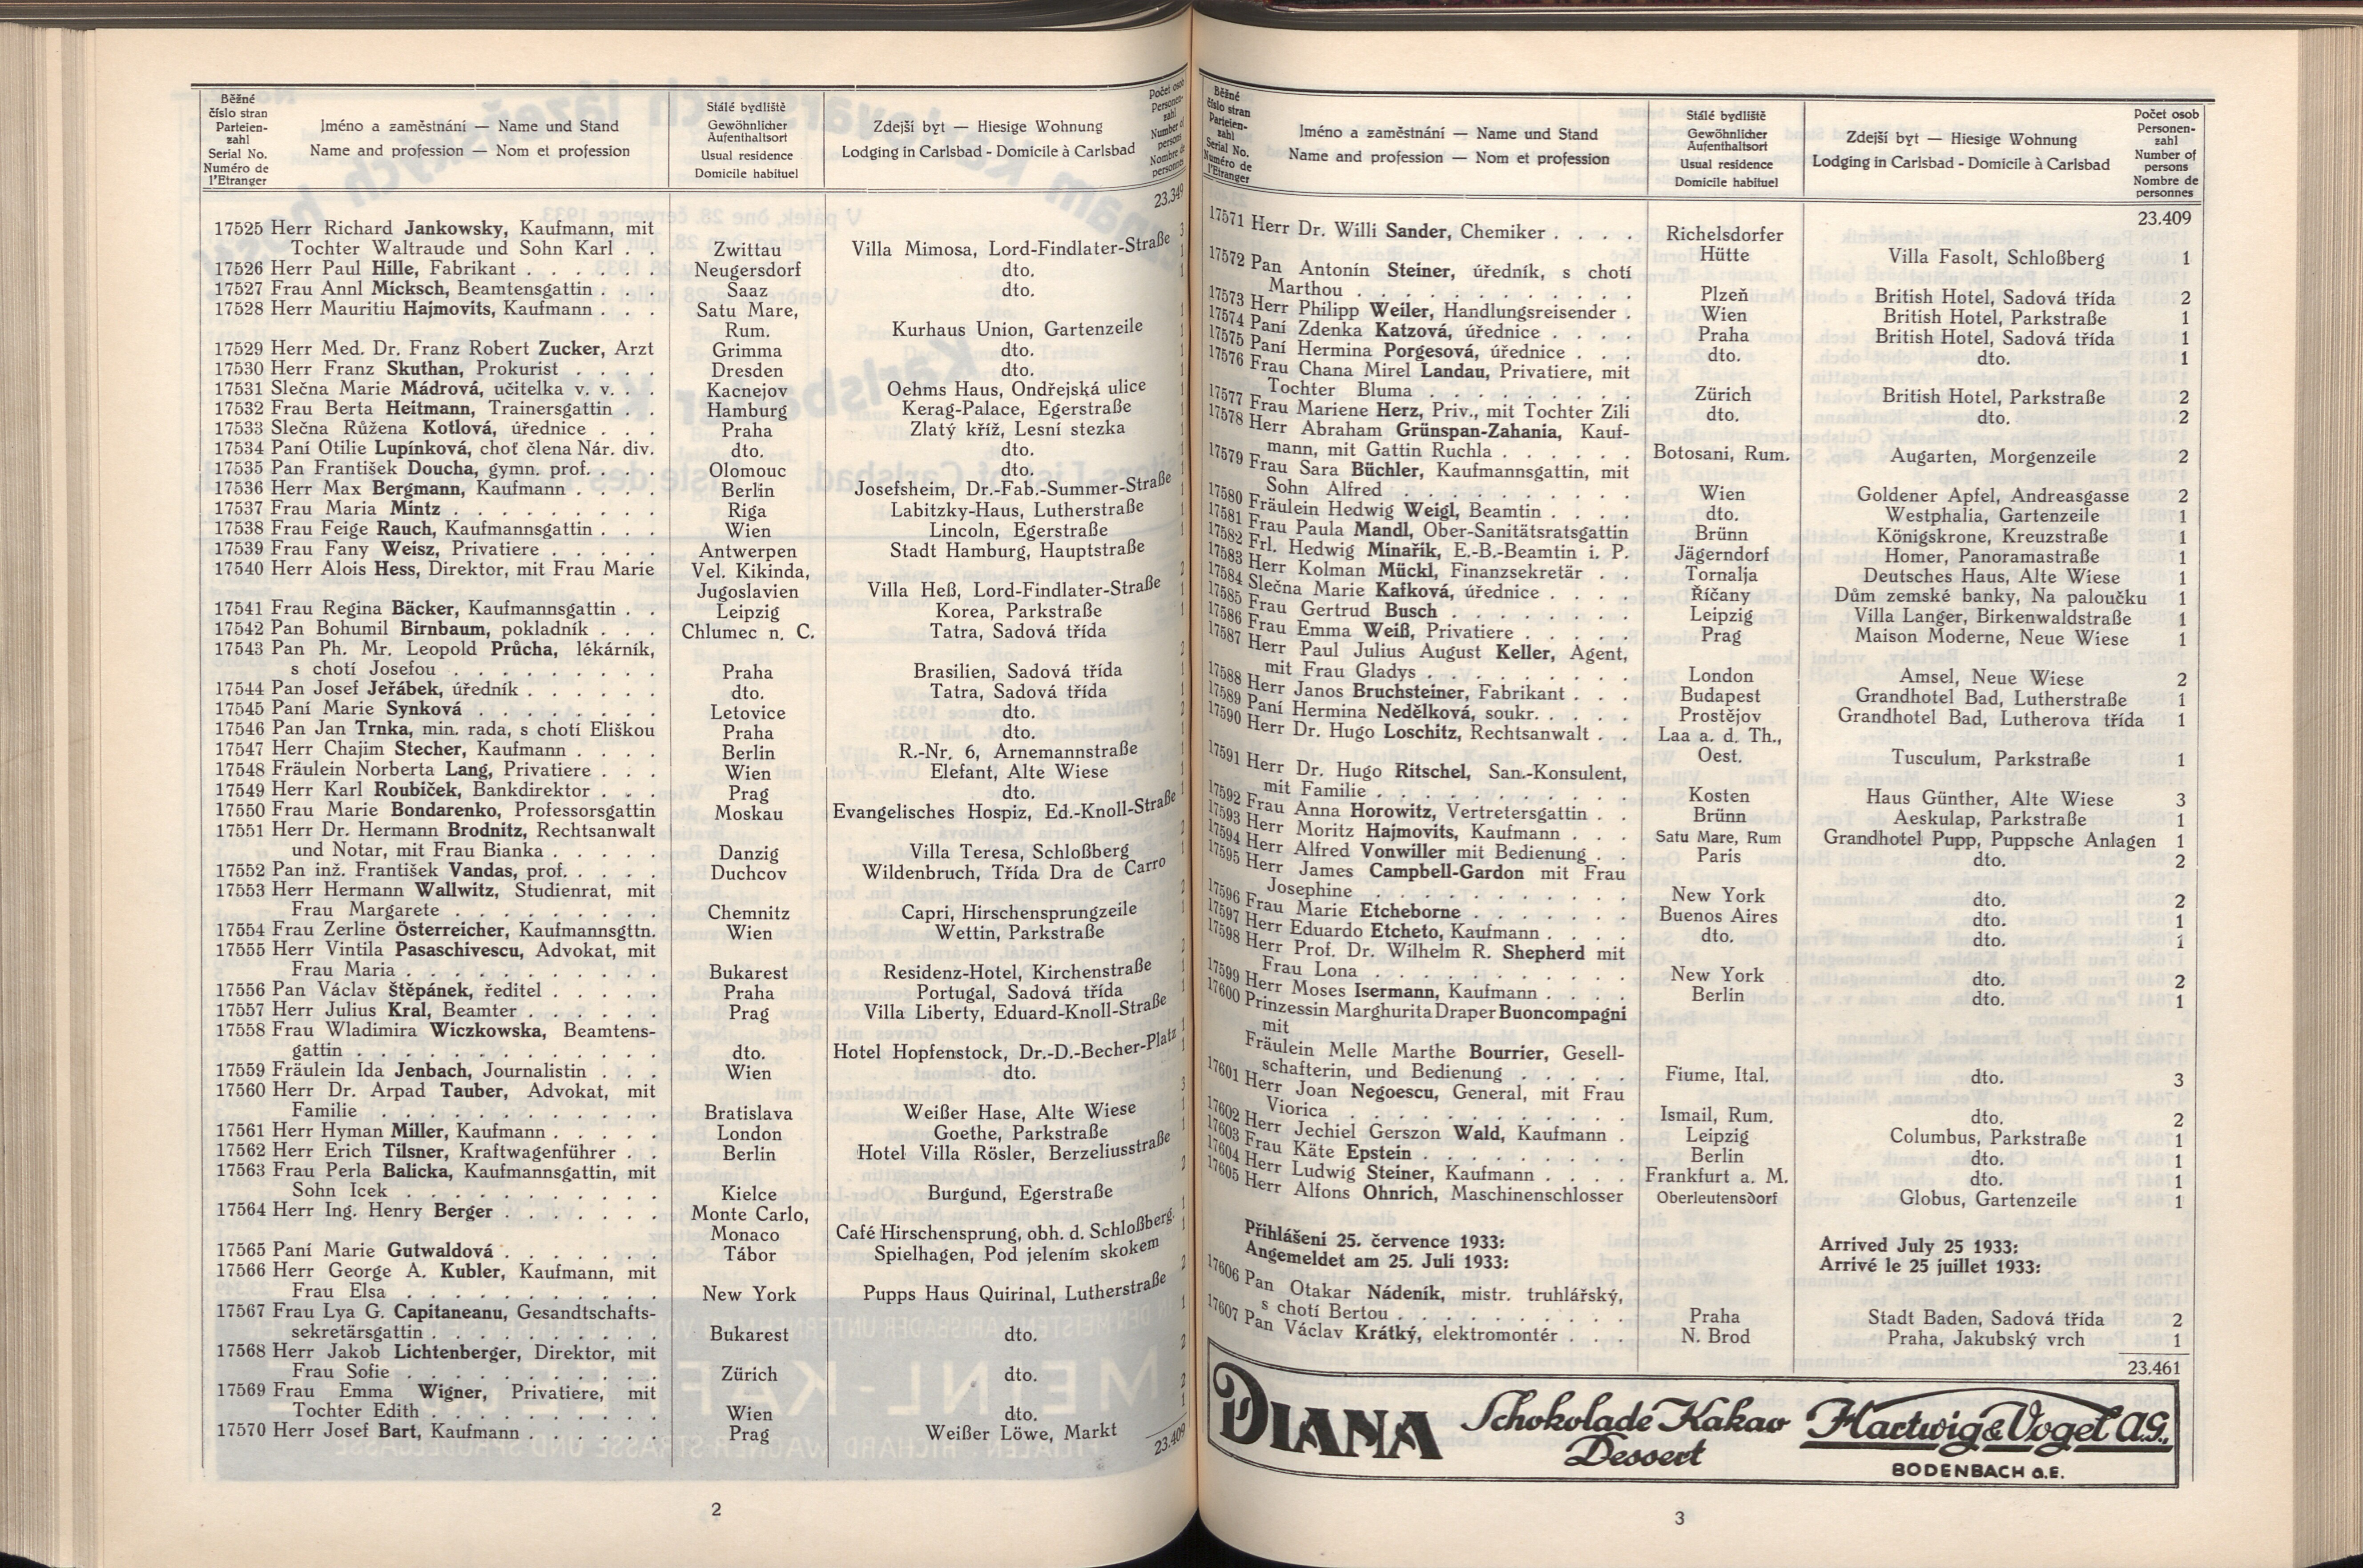 Běžné
číslo stran
Parteien-
zahl
Serial No.
Numéro de
l'Etranger
Jméno a zaměstnání — Name und Stand
Name and profession — Nom et profession
Stálé bydliště
Gewöhnlicher
Aufenthaltsort
Usual residence
Domicile habituel
Zdejší byt — Hiesige Wohnung
Lodging in Carlsbad - Domicile à Carlsbad
Počet osob
Personen-
zahl
Number of
persons
Nombre de
personnes
23.349
17525 Herr Richard Jankowsky, Kaufmann, mit
Tochter Waltraude und Sohn Karl . . Zwittau Villa Mimosa, Lord-Findlater-Straße 3
17526 Herr Paul Hille, Fabrikant . . . . . . . Neugersdorf dto. 1
17527 Frau Annl Micksch, Beamtensgattin . . . Saaz dto. 1
17528 Herr Mauritiu Hajmovits, Kaufmann . . . Satu Mare,
Rum. Kurhaus Union, Gartenzeile 1
17529 Herr Med. Dr. Franz Robert Zucker, Arzt Grimma dto. 1
17530 Herr Franz Skuthan, Prokurist . . . . Dresden dto. 1
17531 Slečna Marie Mádrová, učitelka v. v. . . Kacnejov Oehms Haus, Ondřejská ulice 1
17532 Frau Berta Heitmann, Trainersgattin . . Hamburg Kerag-Palace, Egerstraße 1
17533 Slečna Růžena Kotlová, úřednice . . . Praha Zlatý kříž, Lesní stezka 1
17534 Paní Otilie Lupínková, choť člena Nár. div. dto. dto. 1
17535 Pan František Doucha, gymn. prof. . . . Olomouc dto. 1
17536 Herr Max Bergmann, Kaufmann . . . . Berlin Josefsheim, Dr.-Fab.-Summer-Straße 1
17537 Frau Maria Mintz . . . . . . . . . Riga Labitzky-Haus, Lutherstraße 1
17538 Frau Feige Rauch, Kaufmannsgattin . . . Wien Lincoln, Egerstraße 1
17539 Frau Fany Weisz, Privatiere . . . . . Antwerpen Stadt Hamburg, Hauptstraße 1
17540 Herr Alois Hess, Direktor, mit Frau Marie Vel. Kikinda,
Jugoslavien Villa Heß, Lord-Findlater-Straße 2
17541 Frau Regina Bäcker, Kaufmannsgattin . . Leipzig Korea, Parkstraße 1
17542 Pan Bohumil Birnbaum, pokladník . . . Chlumec n. C. Tatra, Sadová třída 1
17543 Pan Ph. Mr. Leopold Průcha, lékárník,
s chotí Josefou . . . . . . . . . Praha Brasilien, Sadová třída 2
17544 Pan Josef Jeřábek, úředník . . . . . . dto. Tatra, Sadová třída 1
17545 Paní Marie Synková . . . . . . . . Letovice dto. 1
17546 Pan Jan Trnka, min. rada, s chotí Eliškou Praha dto. 2
17547 Herr Chajim Stecher, Kaufmann . . . . Berlin R.-Nr. 6, Arnemannstraße 1
17548 Fräulein Norberta Lang, Privatiere . . . Wien Elefant, Alte Wiese 1
17549 Herr Karl Roubiček, Bankdirektor . . . Prag dto. 1
17550 Frau Marie Bondarenko, Professorsgattin Moskau Evangelisches Hospiz, Ed.-Knoll-Straße 1
17551 Herr Dr. Hermann Brodnitz, Rechtsanwalt
und Notar, mit Frau Bianka . . . . . Danzig Villa Teresa, Schloßberg 2
17552 Pan inž. František Vandas, prof. . . . . Duchcov Wildenbruch, Třída Dra de Carro 1
17553 Herr Hermann Wallwitz, Studienrat, mit
Frau Margarete . . . . . . . . . Chemnitz Capri, Hirschensprungzeile 2
17554 Frau Zerline Österreicher, Kaufmannsgttn. Wien Wettin, Parkstraße 1
17555 Herr Vintila Pasaschivescu, Advokat, mit
Frau Maria . . . . . . . . . . . Bukarest Residenz-Hotel, Kirchenstraße 2
17556 Pan Václav Štěpánek, ředitel . . . . . Praha Portugal, Sadová třída 1
17557 Herr Julius Kral, Beamter . . . . . Prag Villa Liberty, Eduard-Knoll-Straße 1
17558 Frau Wladimira Wiczkowska, Beamtens-
gattin . . . . . . . . . . . . . dto. Hotel Hopfenstock, Dr.-D.-Becher-Platz 1
17559 Fräulein Ida Jenbach, Journalistin . . . Wien dto. 1
17560 Herr Dr. Arpad Tauber, Advokat, mit
Familie . . . . . . . . . . . . Bratislava Weißer Hase, Alte Wiese 3
17561 Herr Hyman Miller, Kaufmann . . . . . London Goethe, Parkstraße 1
17562 Herr Erich Tilsner, Kraftwagenführer . . Berlin Hotel Villa Rösler, Berzeliusstraße 1
17563 Frau Perla Balicka, Kaufmannsgattin, mit
Sohn Icek . . . . . . . . . . . Kielce Burgund, Egerstraße 2
17564 Herr Ing. Henry Berger . . . . . . . Monte Carlo,
Monaco Café Hirschensprung, obh. d. Schloßberg. 1
17565 Paní Marie Gutwaldová . . . . . . . Tábor Spielhagen, Pod jelením skokem 1
17566 Herr George A. Kubler, Kaufmann, mit
Frau Elsa . . . . . . . . . . . New York Pupps Haus Quirinal, Lutherstraße 2
17567 Frau Lya G. Capitaneanu, Gesandtschafts-
sekretärsgattin . . . . . . . . . . Bukarest dto. 1
17568 Herr Jakob Lichtenberger, Direktor, mit
Frau Sofie . . . . . . . . . . . Zürich dto. 2
17569 Frau Emma Wigner, Privatiere, mit
Tochter Edith . . . . . . . . . . Wien dto. 2
17570 Herr Josef Bart, Kaufmann . . . . . . Prag Weißer Löwe, Markt 1
23.409
2
Běžné
číslo stran
Parteien-
zahl
Serial No.
Numéro de
l'Etranger
Jméno a zaměstnání — Name und Stand
Name and profession — Nom et profession
Stálé bydliště
Gewöhnlicher
Aufenthaltsort
Usual residence
Domicile habituel
Zdejší byt — Hiesige Wohnung
Lodging in Carlsbad - Domicile à Carlsbad
Počet osob
Personen-
zahl
Number of
persons
Nombre de
personnes
23.409
17571 Herr Dr. Willi Sander, Chemiker . . . . Richelsdorfer
Hütte Villa Fasolt, Schloßberg 1
17572 Pan Antonín Steiner, úředník, s chotí
Marthou . . . . . . . . . . . . Plzeň British Hotel, Sadová třída 2
17573 Herr Philipp Weiler, Handlungsreisender . Wien British Hotel, Parkstraße 1
17574 Paní Zdenka Katzová, úřednice . . . . Praha British Hotel, Sadová třída 1
17575 Paní Hermina Porgesová, úřednice . . . dto. dto. 1
17576 Frau Chana Mirel Landau, Privatiere, mit
Tochter Bluma . . . . . . . . . Zürich British Hotel, Parkstraße 2
17577 Frau Mariene Herz, Priv., mit Tochter Zili dto. dto. 2
17578 Herr Abraham Grünspan-Zahania, Kauf-
mann, mit Gattin Ruchla . . . . . . Botosani, Rum. Augarten, Morgenzeile 2
17579 Frau Sara Büchler, Kaufmannsgattin, mit
Sohn Alfred . . . . . . . . . . Wien Goldener Apfel, Andreasgasse 2
17580 Fräulein Hedwig Weigl, Beamtin . . . . dto. Westphalia, Gartenzeile 1
17581 Frau Paula Mandl, Ober-Sanitätsratsgattin Brünn Königskrone, Kreuzstraße 1
17582 Frl. Hedwig Minařik, E.-B.-Beamtin i. P. Jägerndorf Homer, Panoramastraße 1
17583 Herr Kolman Mückl, Finanzsekretär . . Tornalja Deutsches Haus, Alte Wiese 1
17584 Slečna Marie Kafková, úřednice . . . . Říčany Dům zemské banky, Na paloučku 1
17585 Frau Gertrud Busch . . . . . . . . Leipzig Villa Langer, Birkenwaldstraße 1
17586 Frau Emma Weiß, Privatiere . . . . . Prag Maison Moderne, Neue Wiese 1
17587 Herr Paul Julius August Keller, Agent,
mit Frau Gladys . . . . . . . . . London Amsel, Neue Wiese 2
17588 Herr Janos Bruchsteiner, Fabrikant . . . Budapest Grandhotel Bad, Lutherstraße 1
17589 Paní Hermina Nedělková, soukr. . . . . Prostějov Grandhotel Bad, Lutherova třída 1
17590 Herr Dr. Hugo Loschitz, Rechtsanwalt . . Laa a. d. Th.,
Oest. Tusculum, Parkstraße 1
17591 Herr Dr. Hugo Ritschel, San.-Konsulent,
mit Familie . . . . . . . . . . . Kosten Haus Günther, Alte Wiese 3
17592 Frau Anna Horowitz, Vertretersgattin . . Brünn Aeskulap, Parkstraße 1
17593 Herr Moritz Hajmovits, Kaufmann . . . Satu Mare, Rum Grandhotel Pupp, Puppsche Anlagen 1
17594 Herr Alfred Vonwiller mit Bedienung . . Paris dto. 2
17595 Herr James Campbell-Gardon mit Frau
Josephine . . . . . . . . . . . New York dto. 2
17596 Frau Marie Etcheborne . . . . . . . Buenos Aires dto. 1
17597 Herr Eduardo Etcheto, Kaufmann . . . . dto. dto. 1
17598 Herr Prof. Dr. Wilhelm R. Shepherd mit
Frau Lona . . . . . . . . . . . New York dto. 2
17599 Herr Moses Isermann, Kaufmann . . . . Berlin dto. 1
17600 Prinzessin Marghurita Draper Buoncompagni
mit
Fräulein Melle Marthe Bourrier, Gesell-
schafterin, und Bedienung . . . . . Fiume, Ital. dto. 3
17601 Herr Joan Negoescu, General, mit Frau
Viorica . . . . . . . . . . . . Ismail, Rum. dto. 2
17602 Herr Jechiel Gerszon Wald, Kaufmann . Leipzig Columbus, Parkstraße 1
17603 Frau Käte Epstein . . . . . . . . . Berlin dto. 1
17604 Herr Ludwig Steiner, Kaufmann . . . . Frankfurt a. M. dto. 1
17605 Herr Alfons Ohnrich, Maschinenschlosser Oberleutensdorf Globus, Gartenzeile 1
Přihlášeni 25. července 1933: Arrived July 25 1933:
Angemeldet am 25. Juli 1933: Arrivé le 25 juillet 1933:
17606 Pan Otakar Nádeník, mistr. truhlářský,
s chotí Bertou . . . . . . . . . . Praha Stadt Baden, Sadová třída 2
17607 Pan Václav Krátký, elektromontér . . . N. Brod Praha, Jakubský vrch 1
23.461
DIANA Schokolade Kakao Hartwig & Vogel A.G.,
Dessert BODENBACH a.E.
3